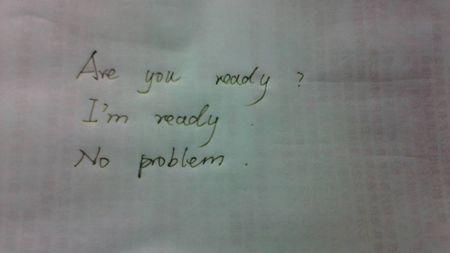 Are you ready ?
I'm ready .
No problem .